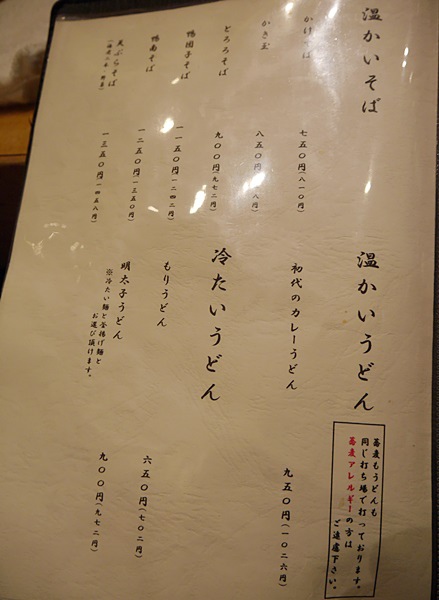 温かいそば
かけそば
七五〇円(八一〇円)
かき玉
八五〇円
八円)
とろろそば
九〇〇円(九七二円)
鴨団子そば
一一五〇円(一二四二円)
鴨南そば
一二五〇円(一三五〇円)
天ぷらそば
一三五〇円(一四五八円)
温かいうどん
初代のカレーうどん
九五〇円(一〇二六円)
冷たいうどん
もりうどん
六五〇円(七〇二円)
明太子うどん
※冷たい麺と釜揚げ麺と
お選び頂けます。
九〇〇円(九七二円)
蕎麦もうどんも
同じ打ち場で打っております。
蕎麦アレルギーの方は
ご遠慮下さい。